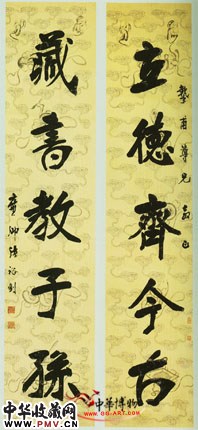 立德齊今古
藏書教子孫
中华博物
WWW.GG-ART.COM
中华收藏网
WWW.PMV.CN